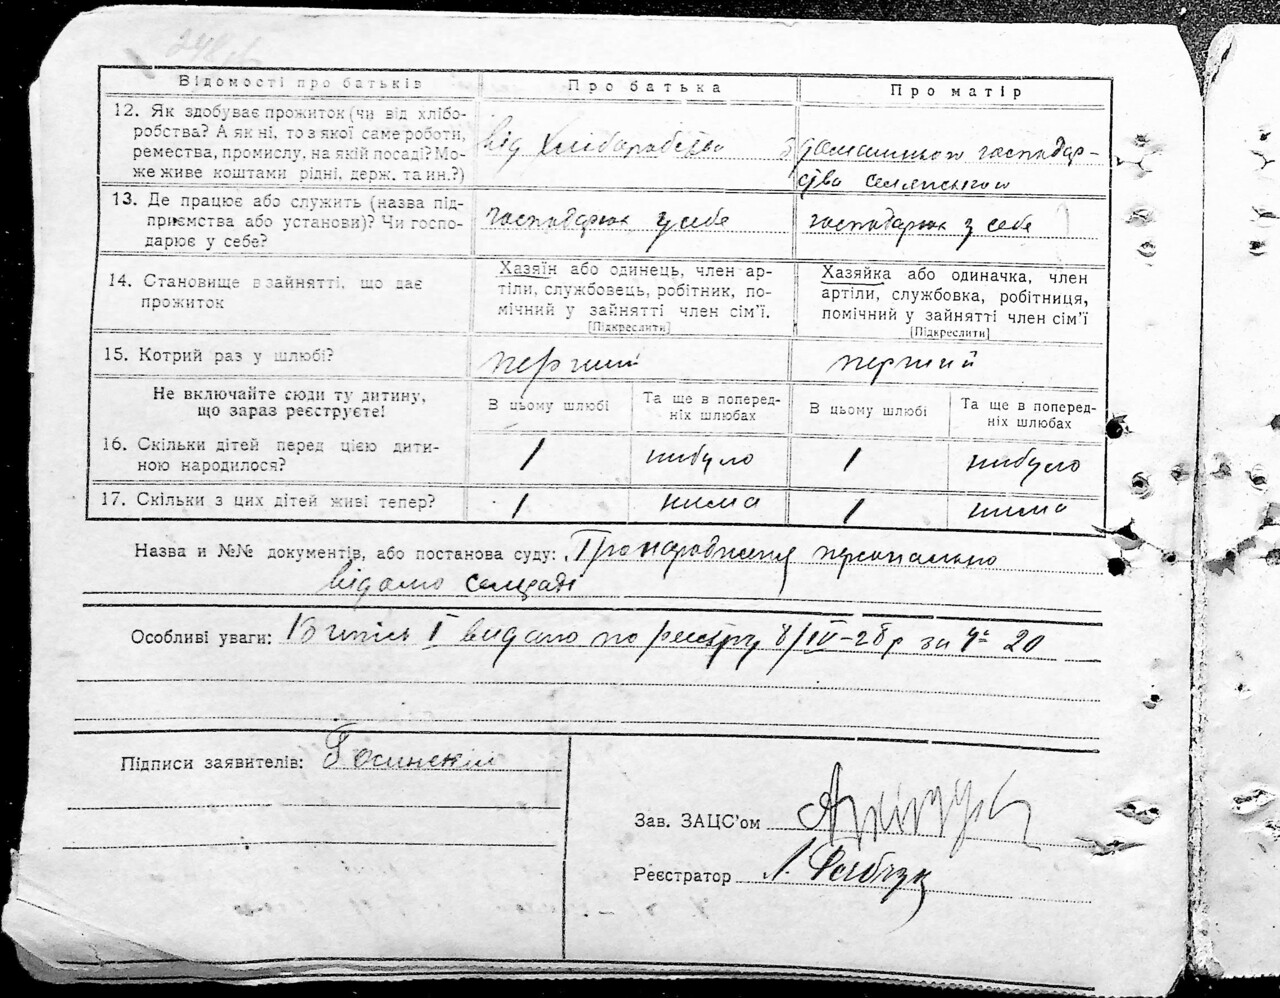 Відомості про батьків
Про батька
Про матір
12. Як здобуває прожиток (чи від хлібо-
робства? А як ні, то з якої саме роботи,
ремества, промислу, на якій посаді? Мо-
же живе коштами рідні, держ. та ин.?)
від хліборобства
з домашнього господар-
ства селянського
13. Де працює або служить (назва під-
приємства або установи)? Чи госпо-
дарює у себе?
господарює у себе
господарює у себе
14. Становище в зайнятті, що дає
прожиток
Хазяїн або одинець, член ар-
тіли, службовець, робітник, по-
мічний у зайнятті член сім'ї.
[Підкреслити]
Хазяйка або одиначка, член
артіли, службовка, робітниця,
помічний у зайнятті член сім'ї
[Підкреслити]
15. Котрий раз у шлюбі?
перший
перший
Не включайте сюди ту дитину,
що зараз реєструєте!
В цьому шлюбі
Та ще в поперед-
ніх шлюбах
В цьому шлюбі
Та ще в поперед-
ніх шлюбах
16. Скільки дітей перед цією дити-
ною народилося?
1
нибуло
1
нибуло
17. Скільки з цих дітей живі тепер?
1
нима
1
нима
Назва и №№ документів, або постанова суду: Про народження персонально
відомо сельраді
Особливі уваги: Витпись І видано по реєстру 8/IV-28р за № 20
Підписи заявителів: Госинскій
Зав. ЗАЦС'ом
Реєстратор Л.